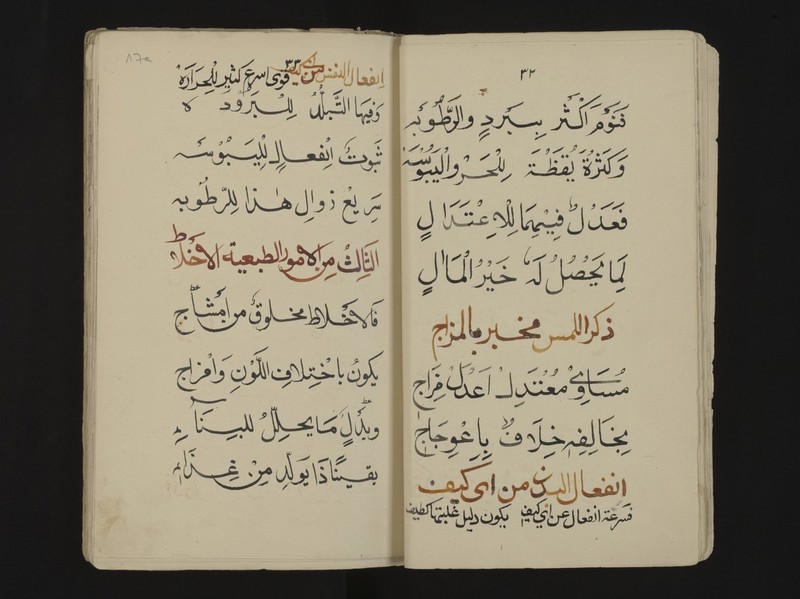 ٣٢
فَنَوْم اَكْثَر بِبَرْدٍ والرَّطُوْبه
وَكَثْرَةُ يُقْظَة لِلْحَر واليَبُوْسَه
فَعَدْلٌ فِيْهِمَا لِلاِعْتَدَالٍ
لِمَا يَحْصُلُ لَهُ خَيْرُ الْمَاٰلٍ
ذكر اللمس مخبر بالمزاج
مُسَاوِيْ مُعْتَدِل اَعْدَلْ مِزَاج
بِخَالِفِهِ خِلَافٌ بِاِعْوِجَاج
انفعال البدن من اى كيف
فسرعة انفعال عن اى كيف يكون دليل غلبتها كطيف
17a
٣٣
انفعال النفس من
قوى اسرع كثير للحرارة
وَفِيهَا التَّبَلُّد لِلْبُرُودَه
ثَبُوتُ اِنْفعالٍ لِلْيَبُوْسَه
سَرِيعْ زوال هٰذا لِلرّطُوبه
الثَالِثْ مِن الامور الطبعية الاخلاط
فالاخلاط مخلوقٌ من امْشاج
يكونُ باخْتِلافِ اللّوْنِ وَامْزاج
وبَدَل مَا يحلّلُ للبِنَاء
بقينًا ذَا يَولّدِ مِنْ غِذَاء